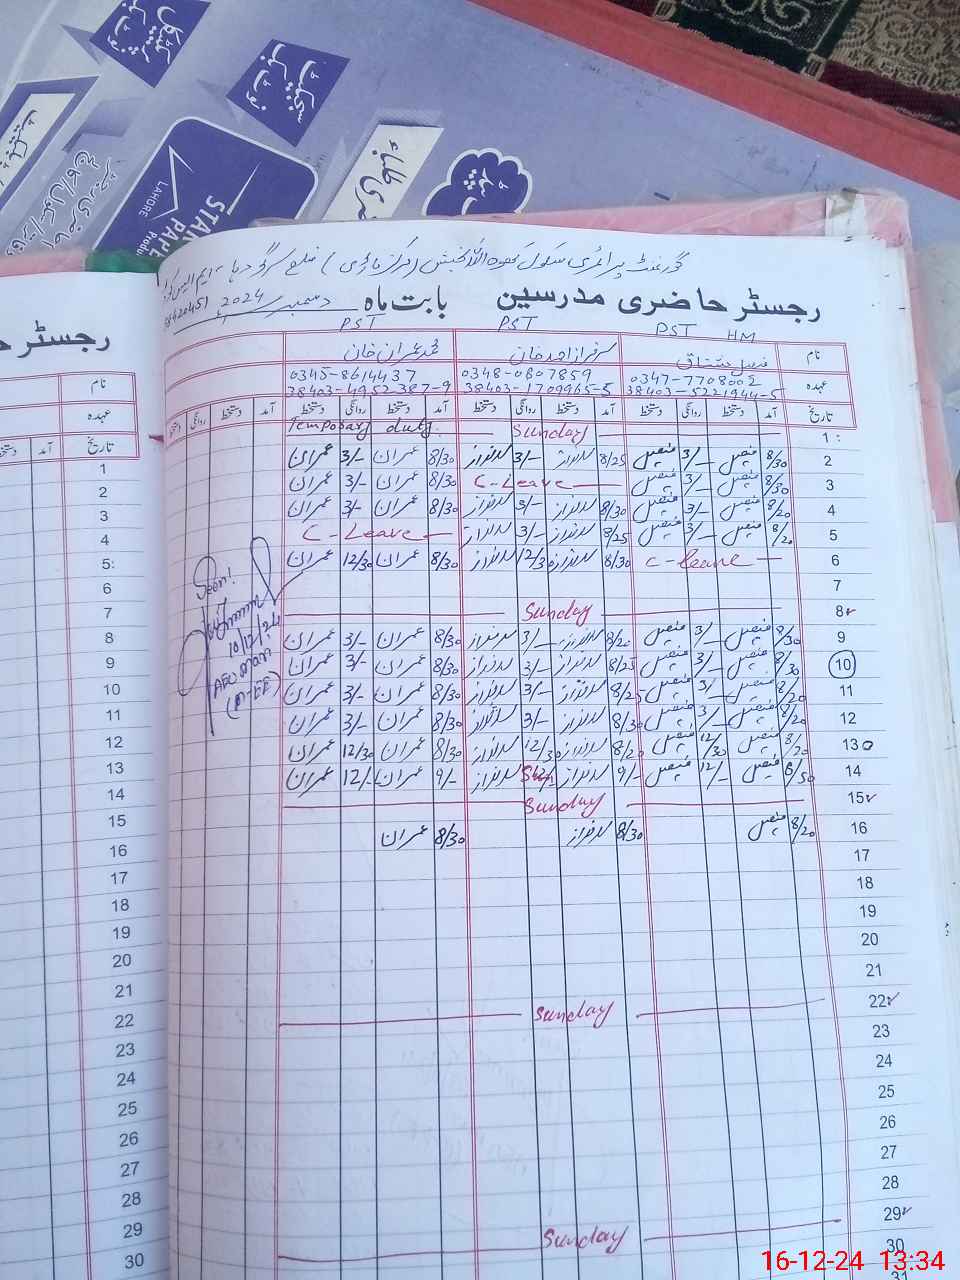 STAR
PAPER
Produ
LAHORE
گورنمنٹ پرائمری سکول
ضلع سرگودہا
رجسٹر حاضری مدرسین بابت ماہ دسمبر 2024
رجسٹر حا
PST HM
PST
PST
نام
فیصل مشتاق
سرفراز احمد خان
محمد عمران خان
عہدہ
0347-7708002
0348-0807859
0345-8614437
38403-5221944-5
38403-1709965-5
38403-4952387-9
تاریخ آمد دستخط روانگی دستخط آمد دستخط روانگی دستخط آمد دستخط روانگی دستخط
1 Sunday Temporary duty
2 8/30 فیصل 3/- فیصل 8/25 سرفراز 3/- سرفراز 8/30 عمران 3/- عمران
3 8/30 فیصل 3/- فیصل C-Leave 8/30 عمران 3/- عمران
4 8/20 فیصل 3/- فیصل 8/30 سرفراز 3/- سرفراز 8/30 عمران 3/- عمران
5 8/20 فیصل 3/- فیصل 8/25 سرفراز 3/- سرفراز C-Leave
6 C-leave 8/30 سرفراز 12/30 سرفراز 8/30 عمران 12/30 عمران
7
8 Sunday
9 8/30 فیصل 3/- فیصل 8/20 سرفراز 3/- سرفراز 8/30 عمران 3/- عمران
10 8/30 فیصل 3/- فیصل 8/25 سرفراز 3/- سرفراز 8/30 عمران 3/- عمران
11 8/20 فیصل 3/- فیصل 8/25 سرفراز 3/- سرفراز 8/30 عمران 3/- عمران
12 8/20 فیصل 3/- فیصل 8/30 سرفراز 3/- سرفراز 8/30 عمران 3/- عمران
13 8/20 فیصل 12/30 فیصل 8/20 سرفراز 12/30 سرفراز 8/30 عمران 12/30 عمران
14 8/50 فیصل 12/- فیصل 9/- سرفراز سرفراز 9/- عمران 12/- عمران
15 Sunday
16 8/20 فیصل 8/30 سرفراز 8/30 عمران
17
18
19
20
21
22 Sunday
23
24
25
26
27
28
29 Sunday
30
31
نام
عہدہ
تاریخ آمد دستخط
1
2
3
4
5
6
7
8
9
10
11
12
13
14
15
16
17
18
19
20
21
22
23
24
25
26
27
28
29
30
16-12-24 13:34